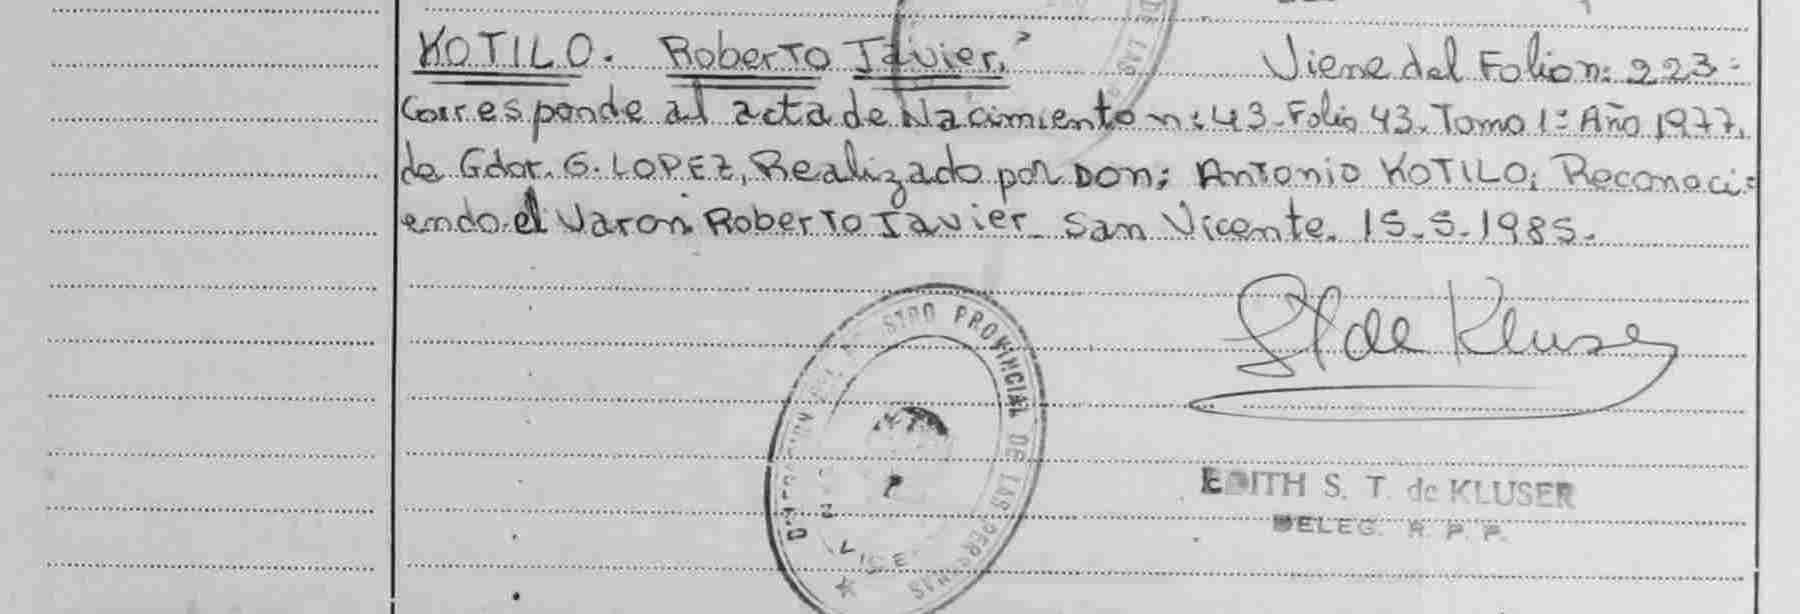 KOTILO. Roberto Javier. Viene del Folio n: 223=
Corresponde al acta de Nacimiento n: 43. Folio 43. Tomo 1º Año 1977.
de Gdor. G. LOPEZ, Realizado por Don; Antonio KOTILO; Reconoci=
endo el Varon Roberto Javier. San Vicente. 15.5.1985.
DE LAS
STRO PROVINCIAL DE LAS PERSONAS
de Kluser
EDITH S. T. de KLUSER
DELEG. R. P. P.